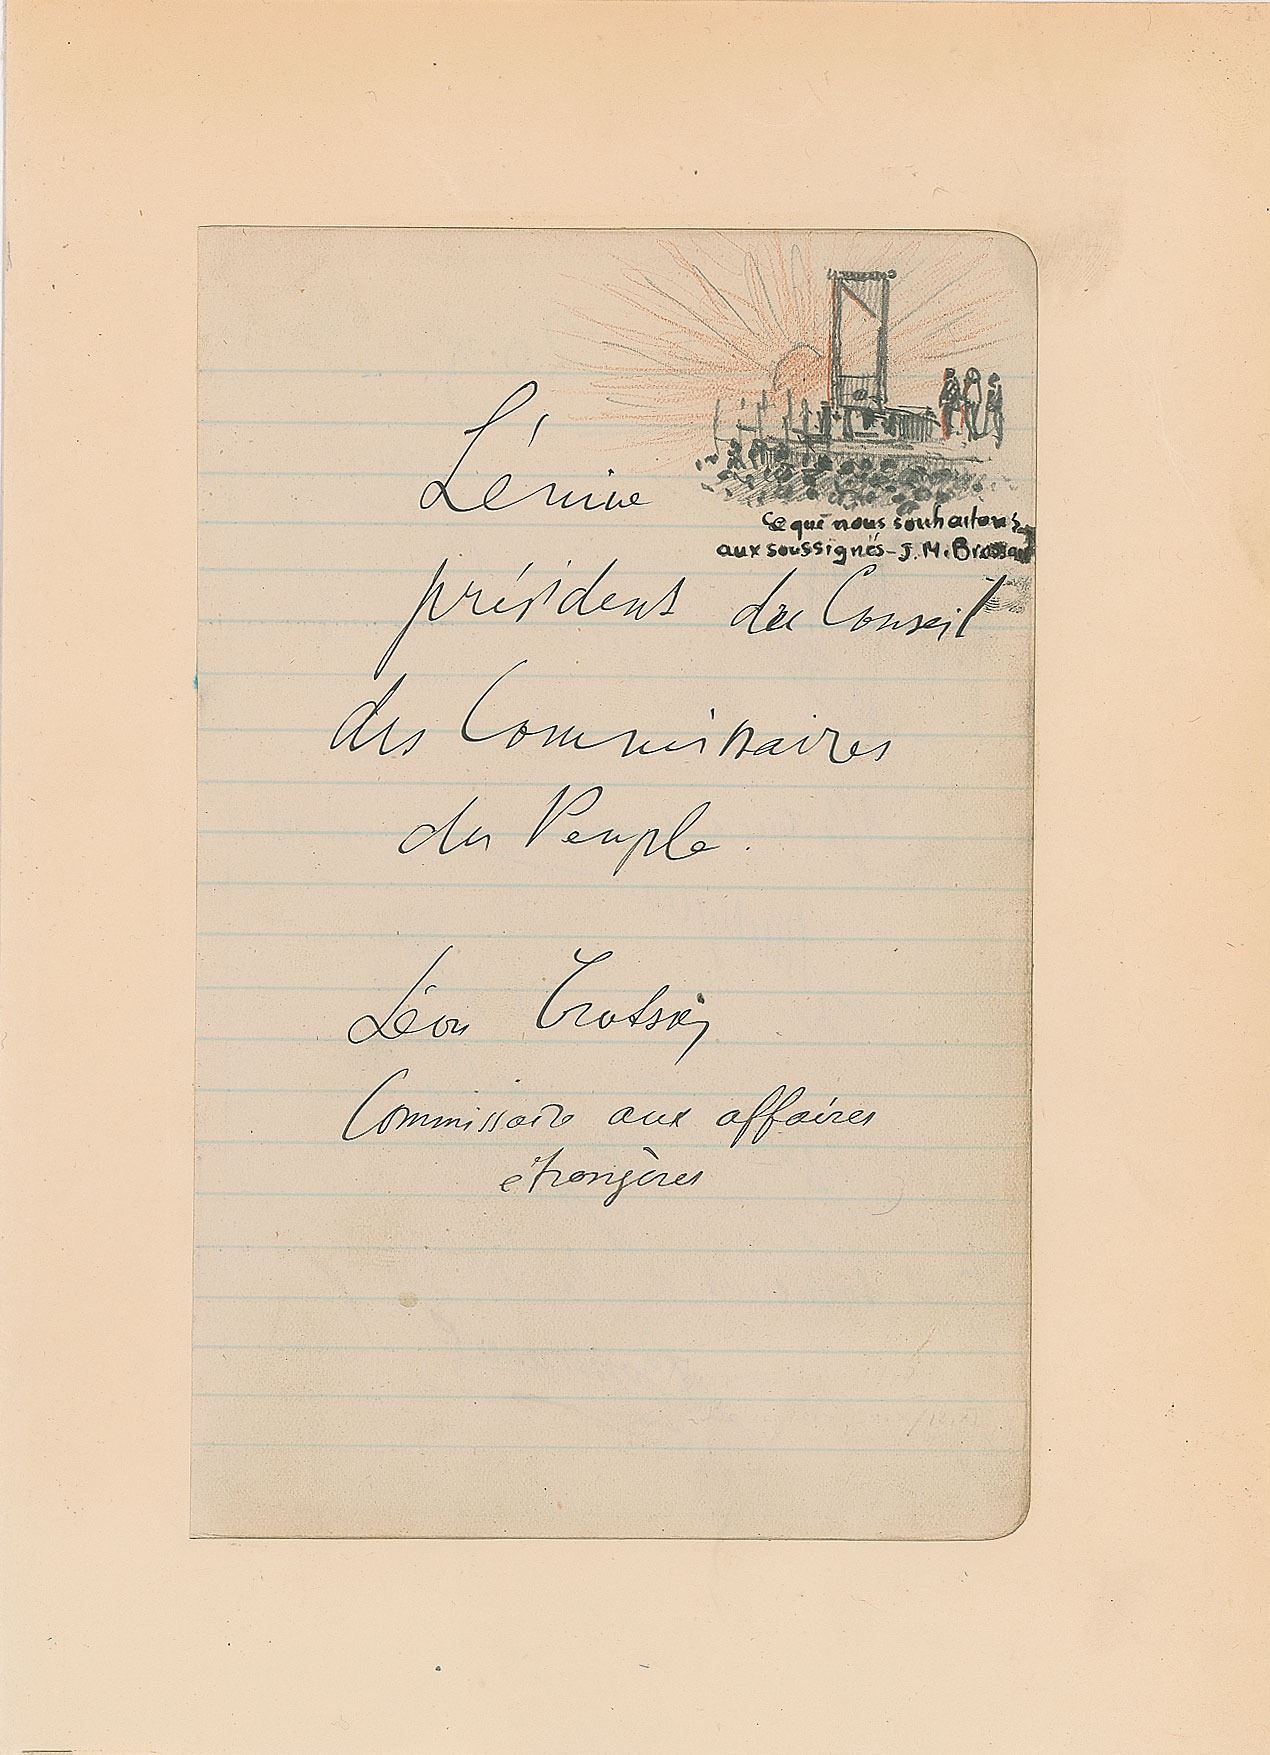 Ce que nous souhaitons
aux soussignés - J. M. 
Lénine
président du Conseil
des Commissaires
du Peuple.
Léon Trotsky
Commissaire aux affaires
étrangères